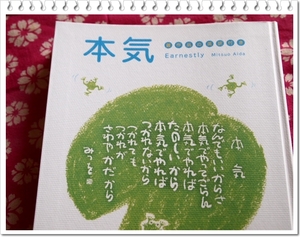 本気
Earnestly Mitsuo Aida
本気
なんでもいいからさ
本気でやってごらん
本気でやれば
たのしいから
本気でやれば
つかれないから
つかれても
つかれが
さわやかだから
みつを